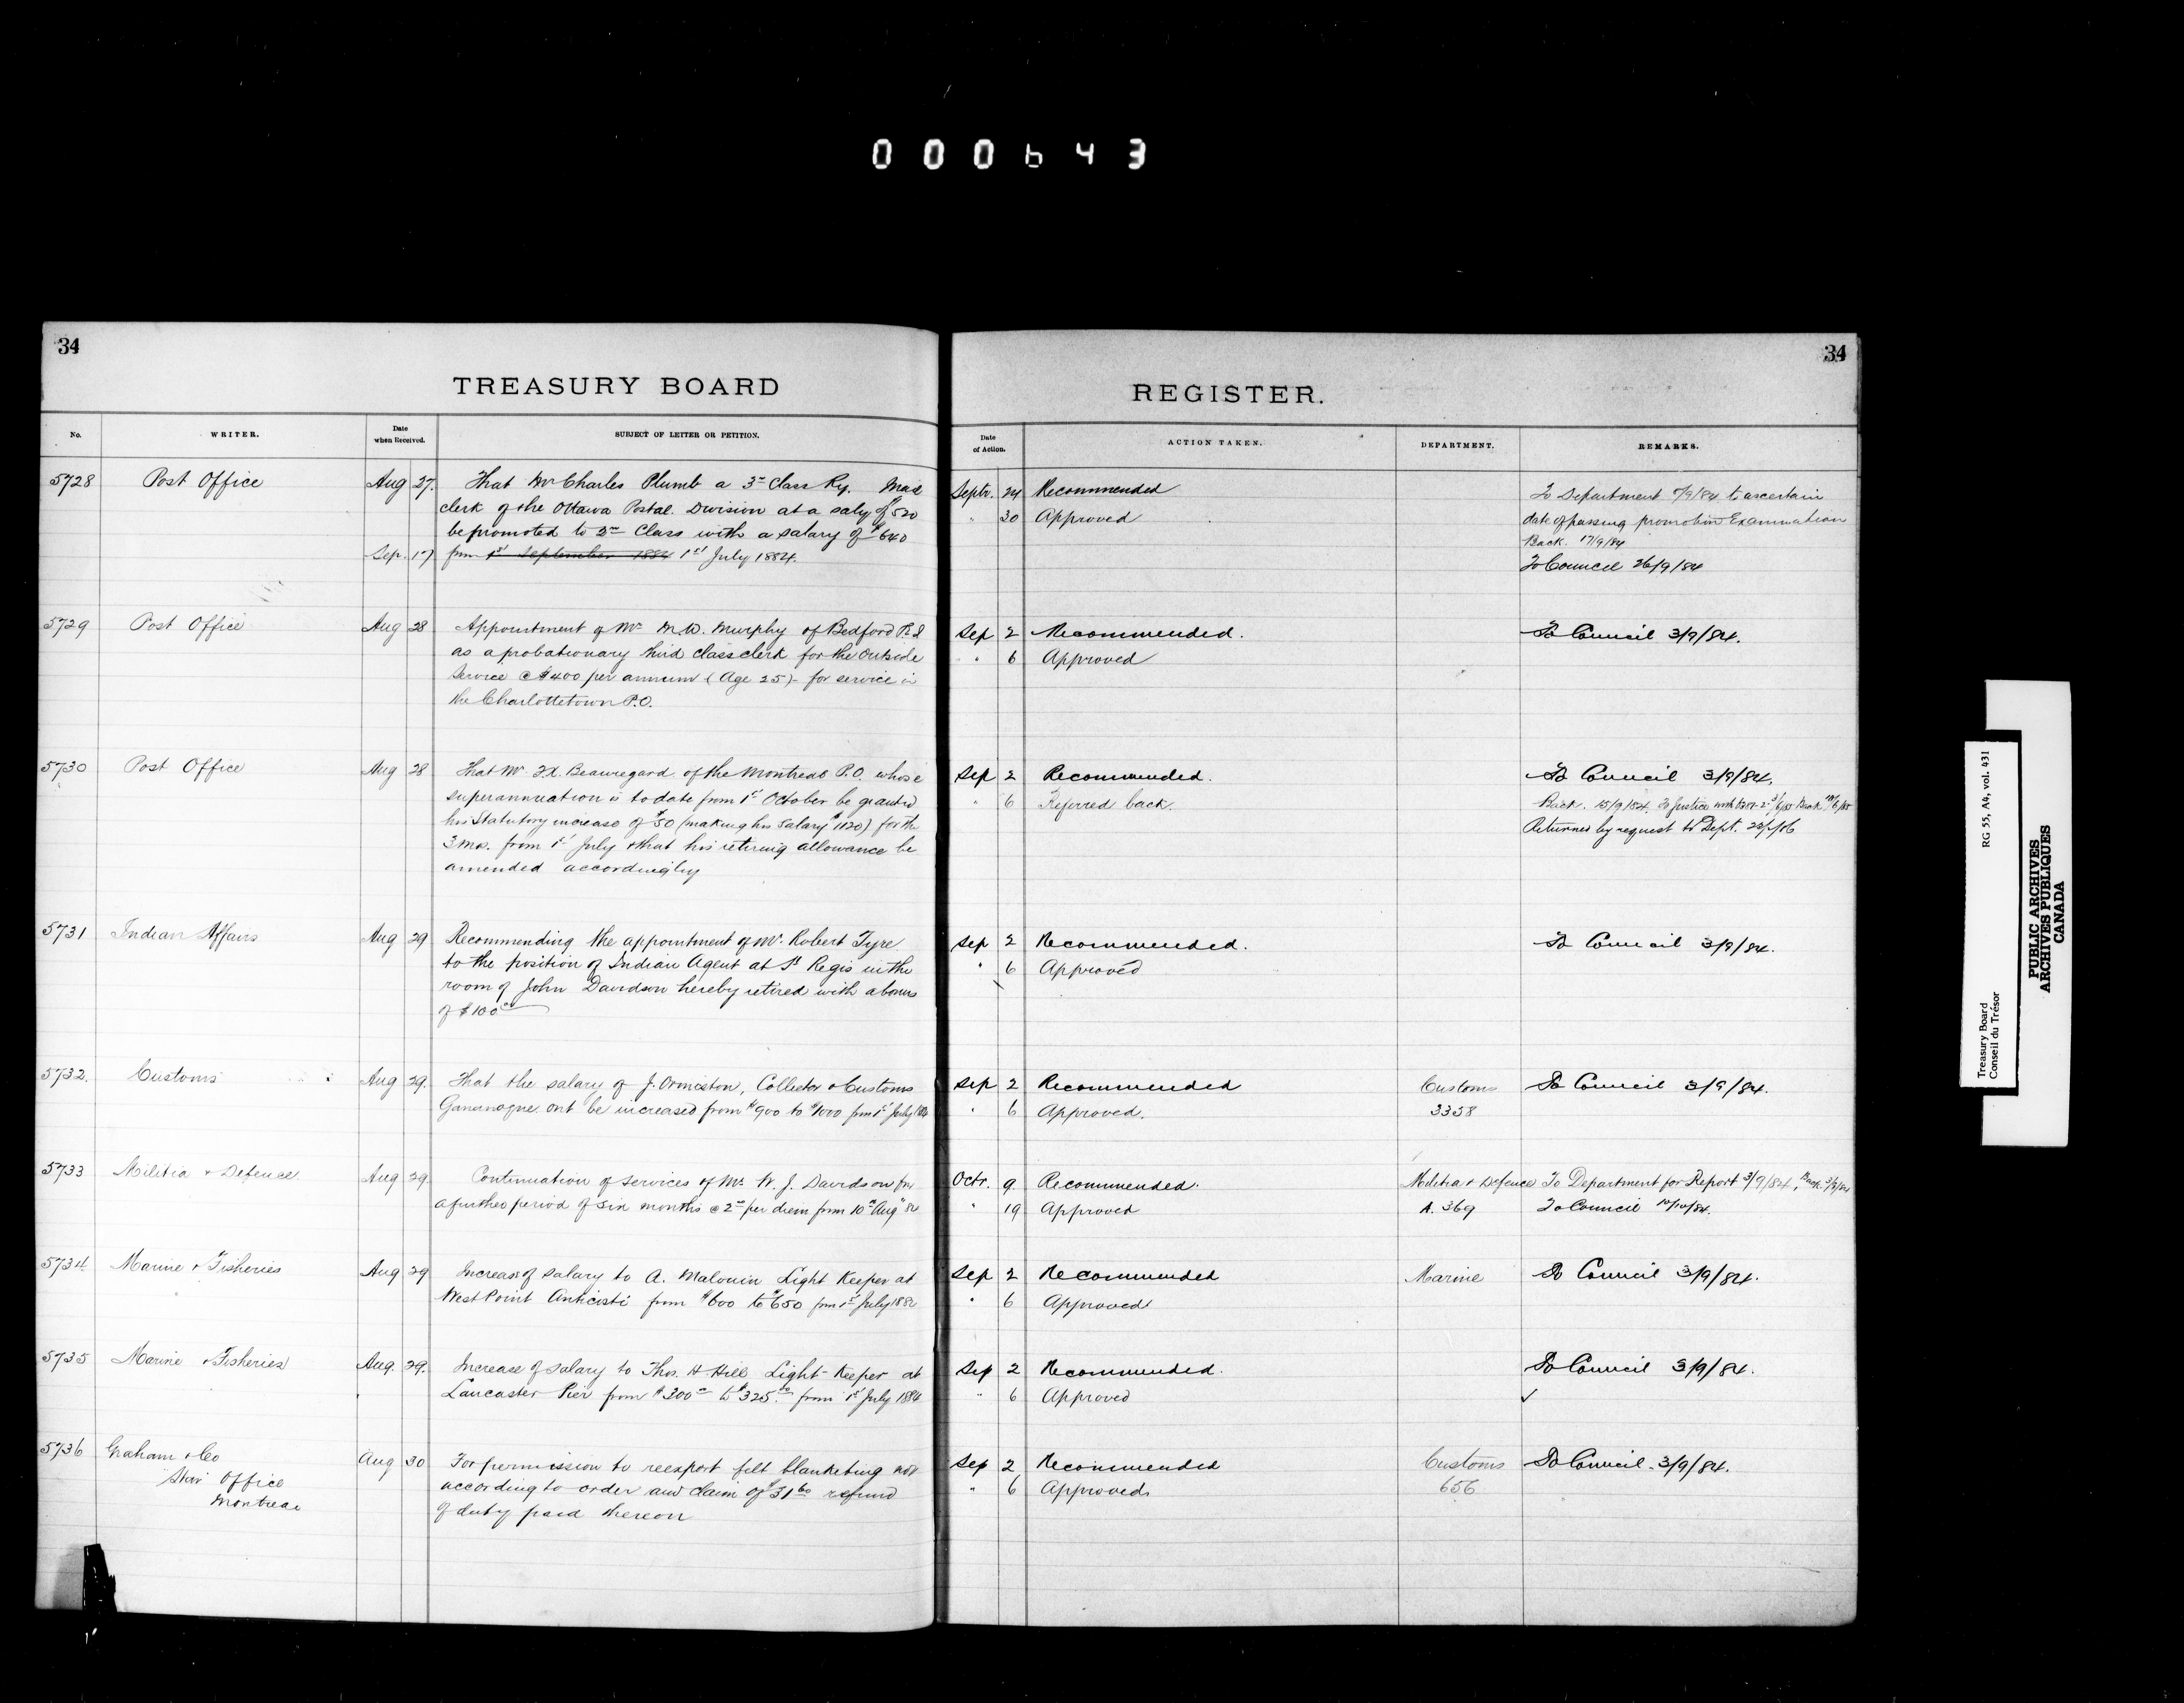 000643
34
TREASURY BOARD
No.
WRITER.
Date
when Received.
SUBJECT OF LETTER OR PETITION.
5728 Post Office Aug 27. That Mr Charles Plumb a 3rd Class Ry. Mail
clerk of the Ottawa Postal Division at a saly of $520
be promoted to 2nd Class with a salary of $640
Sep. 17 from 1st September 1884 1st July 1884.
5729 Post Office Aug 28 Appointment of Mr M.W. Murphy of Bedford P.E.I
as a probationary third class clerk for the Outside
Service @ $400 per annum (Age 25) for service in
the Charlottetown P.O.
5730 Post Office Aug 28 That Mr Beauregard of the Montreal P.O. whose
superannuation is to date from 1st October be granted
his Statutory increase of $50 (making his Salary $1120) for the
3 mos. from 1st July & that his retiring allowance be
amended accordingly
5731 Indian Affairs Aug 29 Recommending the appointment of Mr Robert Tyre
to the position of Indian Agent at St Regis in the
room of John Davidson hereby retired with a bonus
of $100
5732. Customs Aug 29. That the salary of J. Ormiston, Collector of Customs
Gananoque Ont be increased from $900 to $1000 from 1st July
5733 Militia & Defence Aug 29. Continuation of services of Mr W. J. Davidson for
a further period of six months @ 2 per diem from 10th Aug 84
5734 Marine & Fisheries Aug 29 Increase of salary to A. Malouin Light Keeper at
West Point Anticosti from $600 to $650 from 1st July
5735 Marine & Fisheries Aug. 29. Increase of salary to Thos. H Hill Light-Keeper at
Lancaster Pier from $300 to $325. from 1st July 1884
5736 Graham & Co Aug 30 For permission to reexport felt blanketing not
Star Office according to order and claim of $31 60 refund
Montreal of duty paid thereon
34
REGISTER.
Date
of Action.
ACTION TAKEN.
DEPARTMENT.
REMARKS.
Septr. 24 Recommended To Department /9/84 to ascertain
" 30 Approved date of passing promotion Examination
Back. 17/9/84
To Council 26/9/84
Sep 2 Recommended. To Council 3/9/84.
" 6 Approved
Sep 2 Recommended. To Council 3/9/84.
" 6 Referred back. Back. 15/9/84. To Justice with
Returned by request to Dept.
Sep 2 Recommended. To Council 3/9/84.
" 6 Approved
Sep 2 Recommended Customs To Council 3/9/84.
" 6 Approved. 3358
Octr. 9 Recommended. Militia & Defence To Department for Report 3/9/84, Back
" 19 Approved A. 369 To Council 10/10/84.
Sep 2 Recommended Marine To Council 3/9/84.
" 6 Approved
Sep 2 Recommended. To Council 3/9/84.
" 6 Approved ✓
Sep 2 Recommended Customs To Council. 3/9/84.
" 6 Approved 656
Treasury Board RG 55, A4, vol. 431
Conseil du Trésor
PUBLIC ARCHIVES
ARCHIVES PUBLIQUES
CANADA